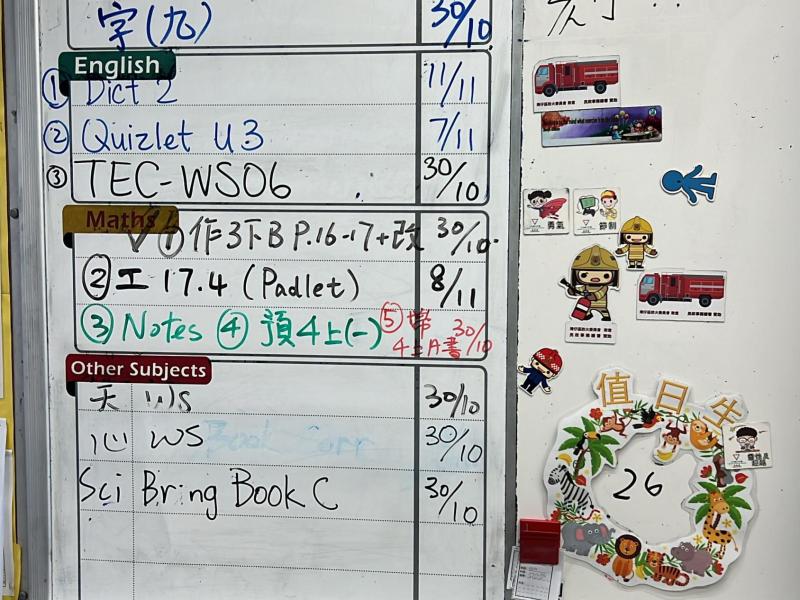 字(九) 30/10
English
① Dict 2 11/11
② Quizlet U3 7/11
③ TEC-WS06 30/10
Maths
✓① 作3下B P.16-17+改 30/10
② 工 17.4 (Padlet) 8/11
③ Notes ④ 預4上(一) ⑤ 帶 30/10
4上A書
Other Subjects
天 WS 30/10
心 WS 30/10
Sci Bring Book C 30/10
勇氣
節制
值日生
26